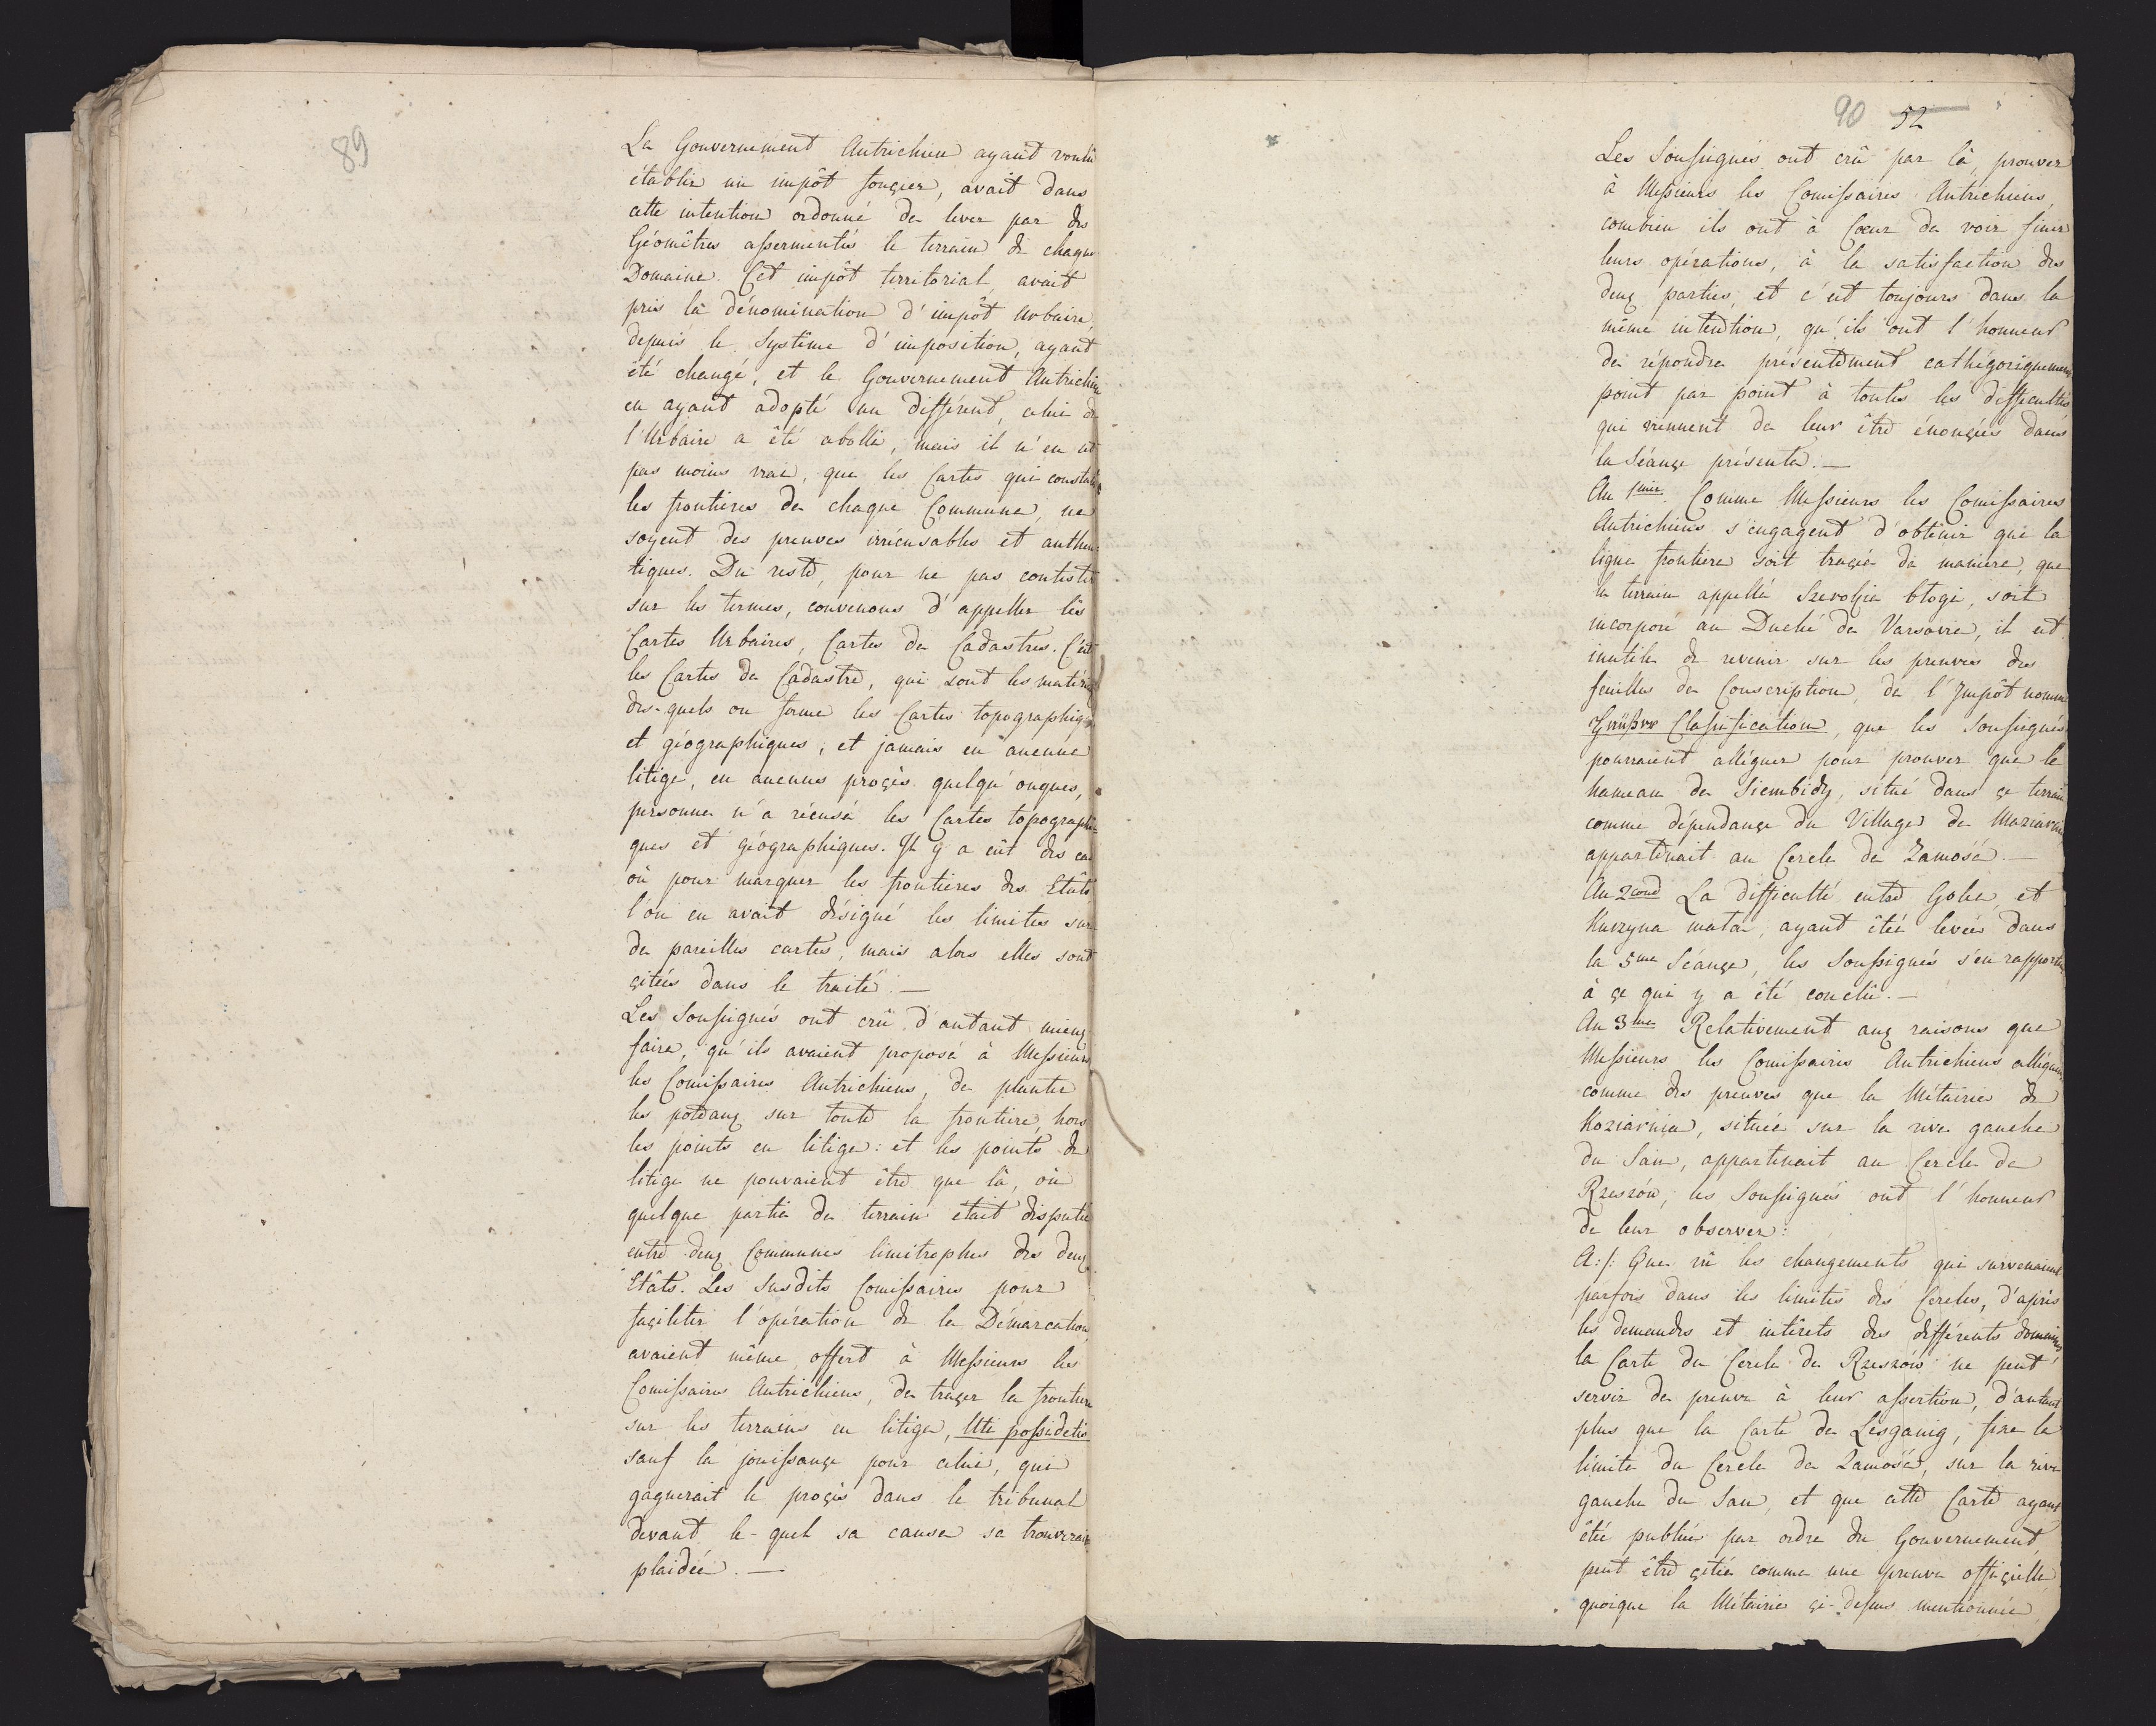 89
La Gouvernement Autrichien ayant voulû
établir un impôt fonçier, avait dans
cette intention ordonné de lever par des
Géomêtres assermentés le terrain de chaque
Domaine. Cet impôt territorial avait
pris la dénomination d'impôt Urbaire,
depuis le Systême d'imposition, ayant
été changé, et le Gouvernement Autrichien
en ayant adopté un différent, celui de
l'Urbaire a été abolli, mais il n'en est
pas moins vrai, que les Cartes qui
les frontieres de chaque Commune, ne
soyent des preuves irrécusables et authen-
tiques. Du reste, pour ne pas contester
sur les termes, convenons d'appeller les
Cartes Urbaires, Cartes de Cadastres. C'est
les Cartes de Cadastre, qui sont les
des-quels on forme les Cartes topographiques
et géographiques, et jamais en aucune
litige, en aucuns proçès quelqu'onques,
personne n'a récusé les Cartes topographi-
ques et géographiques. Il y a eût des cas
où pour marquer les frontieres des Etâts
l'on en avait désigné les limites sur
de pareilles cartes, mais alors elles sont
çitées dans le traité. —
Les Soussignés ont crû d'autant mieux
faire, qu'ils avaient proposé à Messieurs
les Comissaires Autrichiens, de planter
les poteaux sur toute la frontiere, hors
les points en litige: et les points de
litige ne pouvaient être que là, où
quelque partie de terrain etait disputée
entre deux Communes limitrophes des deux
Etâts. Les susdits Comissaires pour
façiliter l'opération de la Démarcation,
avaient même offert à Messieurs les
Comissaires Autrichiens, de traçer la frontiere
sur les terrains en litige, Uti possidetis
sauf la jouissançe pour celui, qui
gagnerait le proçès dans le tribunal
devant le-quel sa cause se trouverait
plaidée. —
90 52
Les Soussignés ont crû par là, prouver
à Messieurs les Comissaires Autrichiens,
combien ils ont à Cœur de voir finir
leurs opérations, à la satisfaction des
deux parties, et c'est toujours dans la
même intention, qu'ils ont l'honneur
de répondre présentement cathégoriquement
point par point à toutes les difficultés
qui viennent de leur être énonçées dans
la Séançe présente. —
Au 1mier Comme Messieurs les Comissaires
Autrichiens s'engagent d'obtenir que la
ligne frontiere soit traçée de maniere, que
le terrain appellé Szerokie błogie, soit
incorporé au Duché de Varsovie, il est
inutile de revenir sur les preuves des
feuilles de Conscription, de l'Impôt nommé
Classification, que les Soussignés
pourraient alléguer pour prouver que le
hameau de Siembidy, situé dans çe terrain
comme dépendançe du Village de
appartenait au Cercle de Zamosć. —
Au 2cond La difficulté entre Golce, et
Kurzyna mała, ayant étée levée dans
la 5me Séançe, les Soussignés s'en rapportent
à çe qui y a été conclû. —
Au 3me Relativement aux raisons que
Messieurs les Comissaires Autrichiens alléguent
comme des preuves que la Métairie de
Koziarnia, située sur la rive gauche
du San, appartenait au Cercle de
Rzeszów, les Soussignés ont l'honneur
de leur observer:
A:/: Que vû les changements qui survenaient
parfois dans les limites des Cercles, d'après
les demandes et intérets des différents domaines
la Carte du Cercle de Rzeszów ne peut
servir de preuve à leur assertion, d'autant
plus que la Carte de Lesganig, fixe la
limite du Cercle de Zamosć, sur la rive
gauche du San, et que cette Carte ayant
étée publiée par ordre du Gouvernement,
peut être çitée comme une preuve offiçielle
quoique la Métairie çi-dessus mentionnée